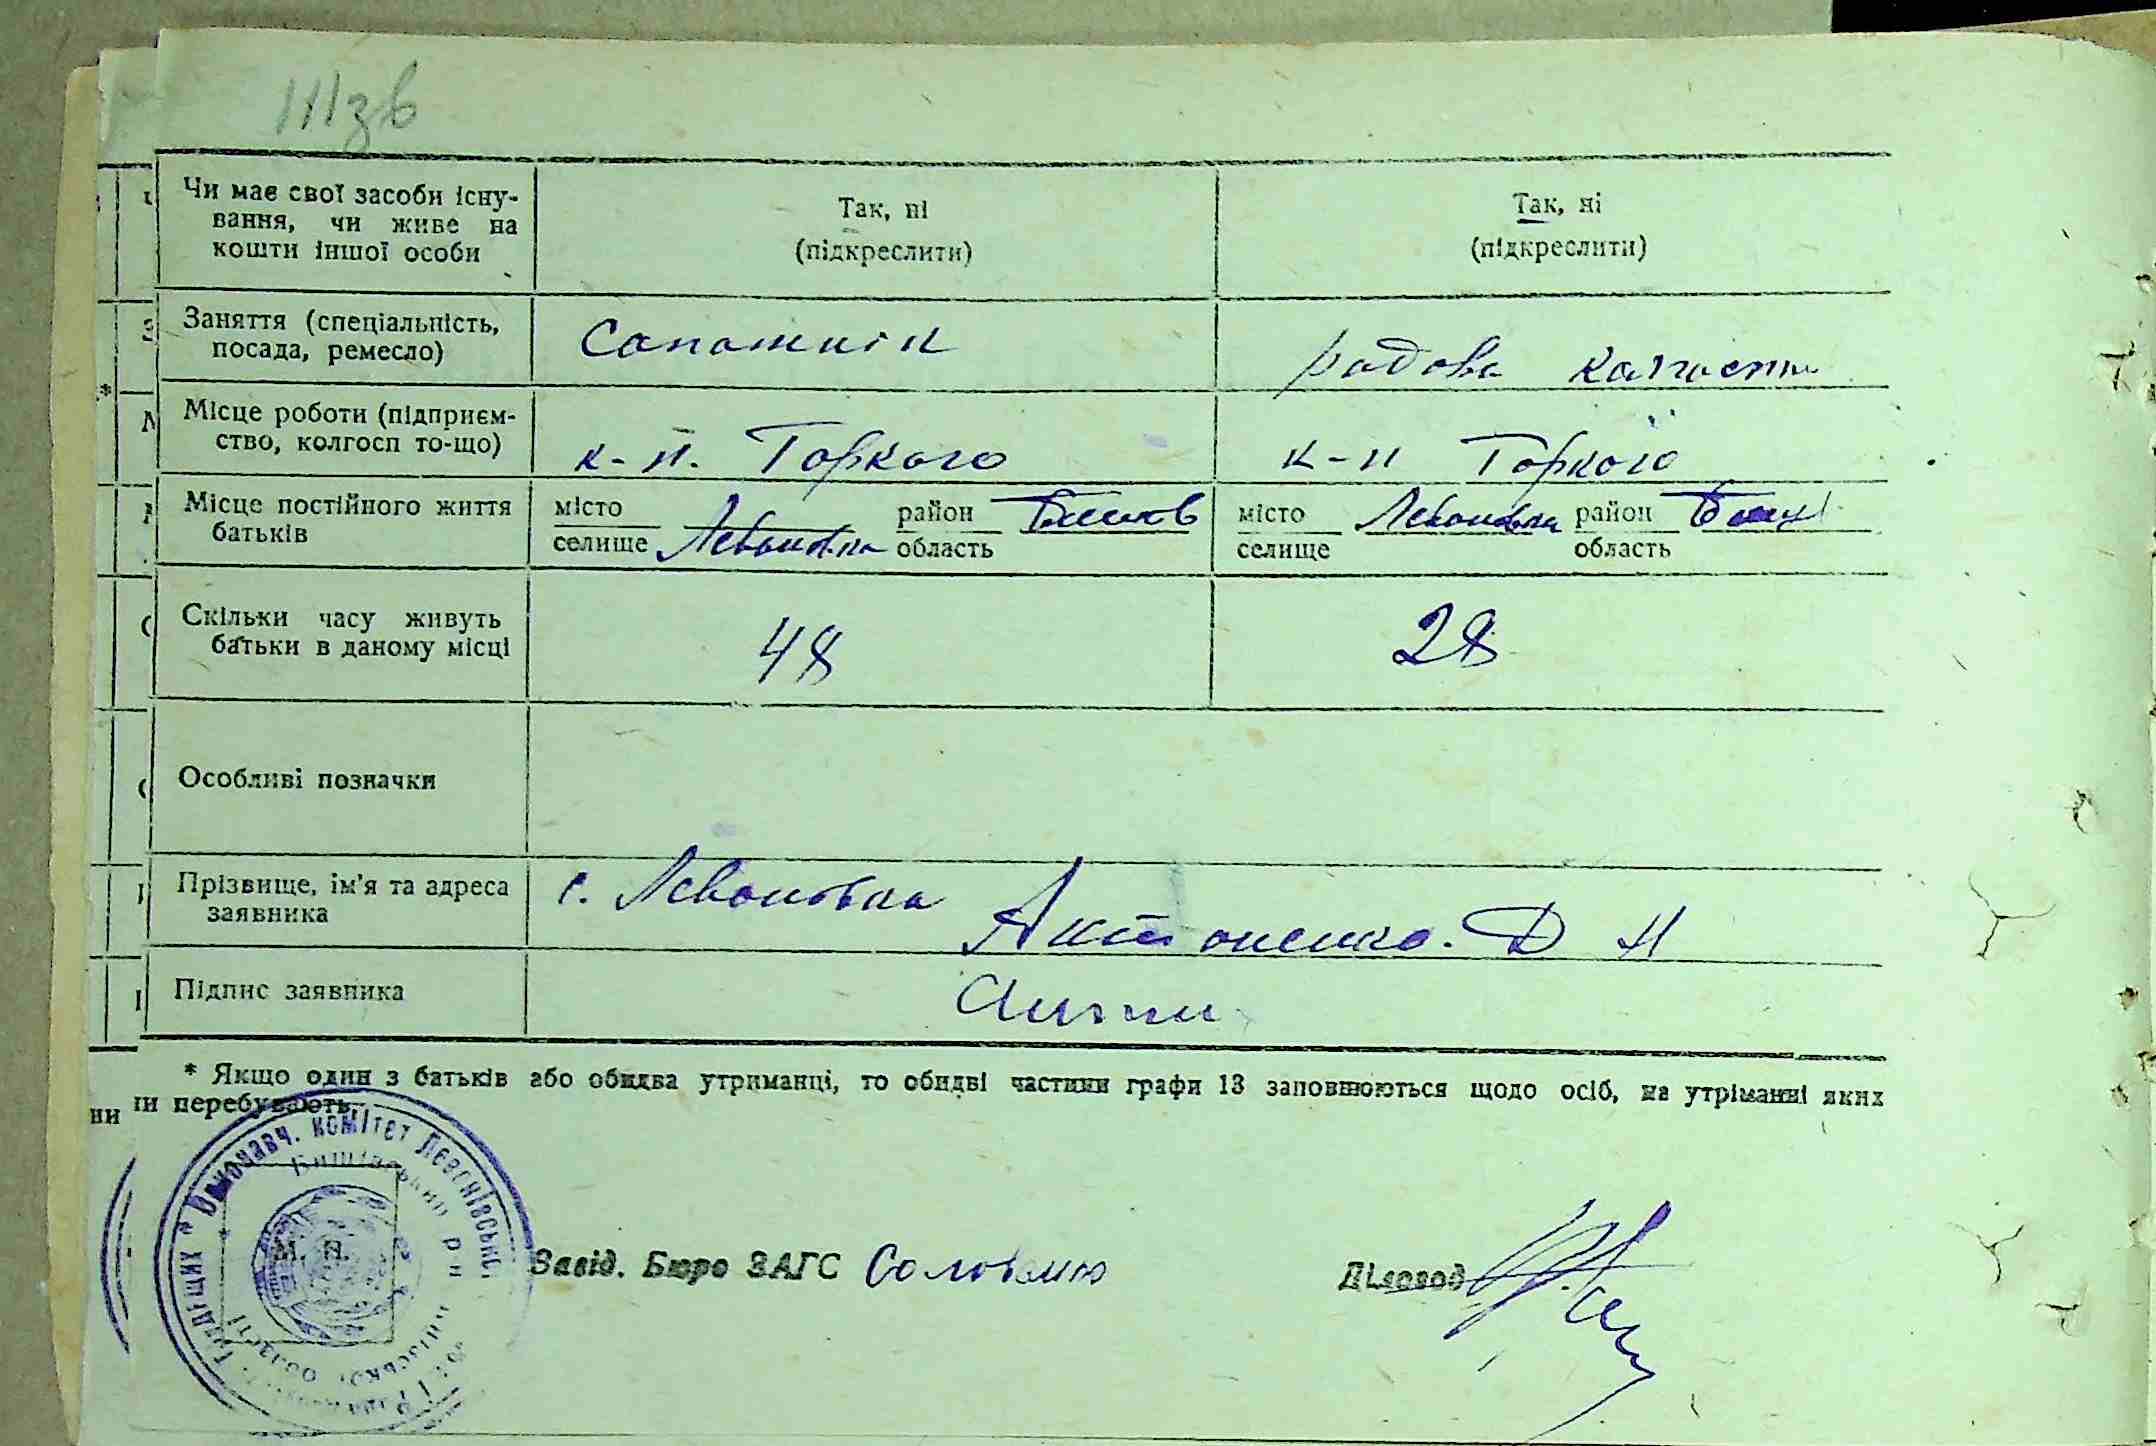 111зв
Чи має свої засоби існу-
вання, чи живе на
кошти іншої особи
Так, ні
(підкреслити)
Так, ні
(підкреслити)
Заняття (спеціальність,
посада, ремесло)
Сапожнік
радова
Місце роботи (підприєм-
ство, колгосп то-що)
к-п. Горкого
к-п Горкого
Місце постійного життя
батьків
місто
селище Левоновка
район
область
місто Левоновка
селище
район
область
Скільки часу живуть
батьки в даному місці
48
28
Особливі позначки
Прізвище, ім'я та адреса
заявника
с. Левоновка
Антоненко. Д Н
Підпис заявника
* Якщо один з батьків або обидва утриманці, то обидві частини графи 13 заповнюються щодо осіб, на утріманні яких
ни перебувають.
ни
Виконавч. комітет
М. П.
Завід. Бюро ЗАГС
Діловод